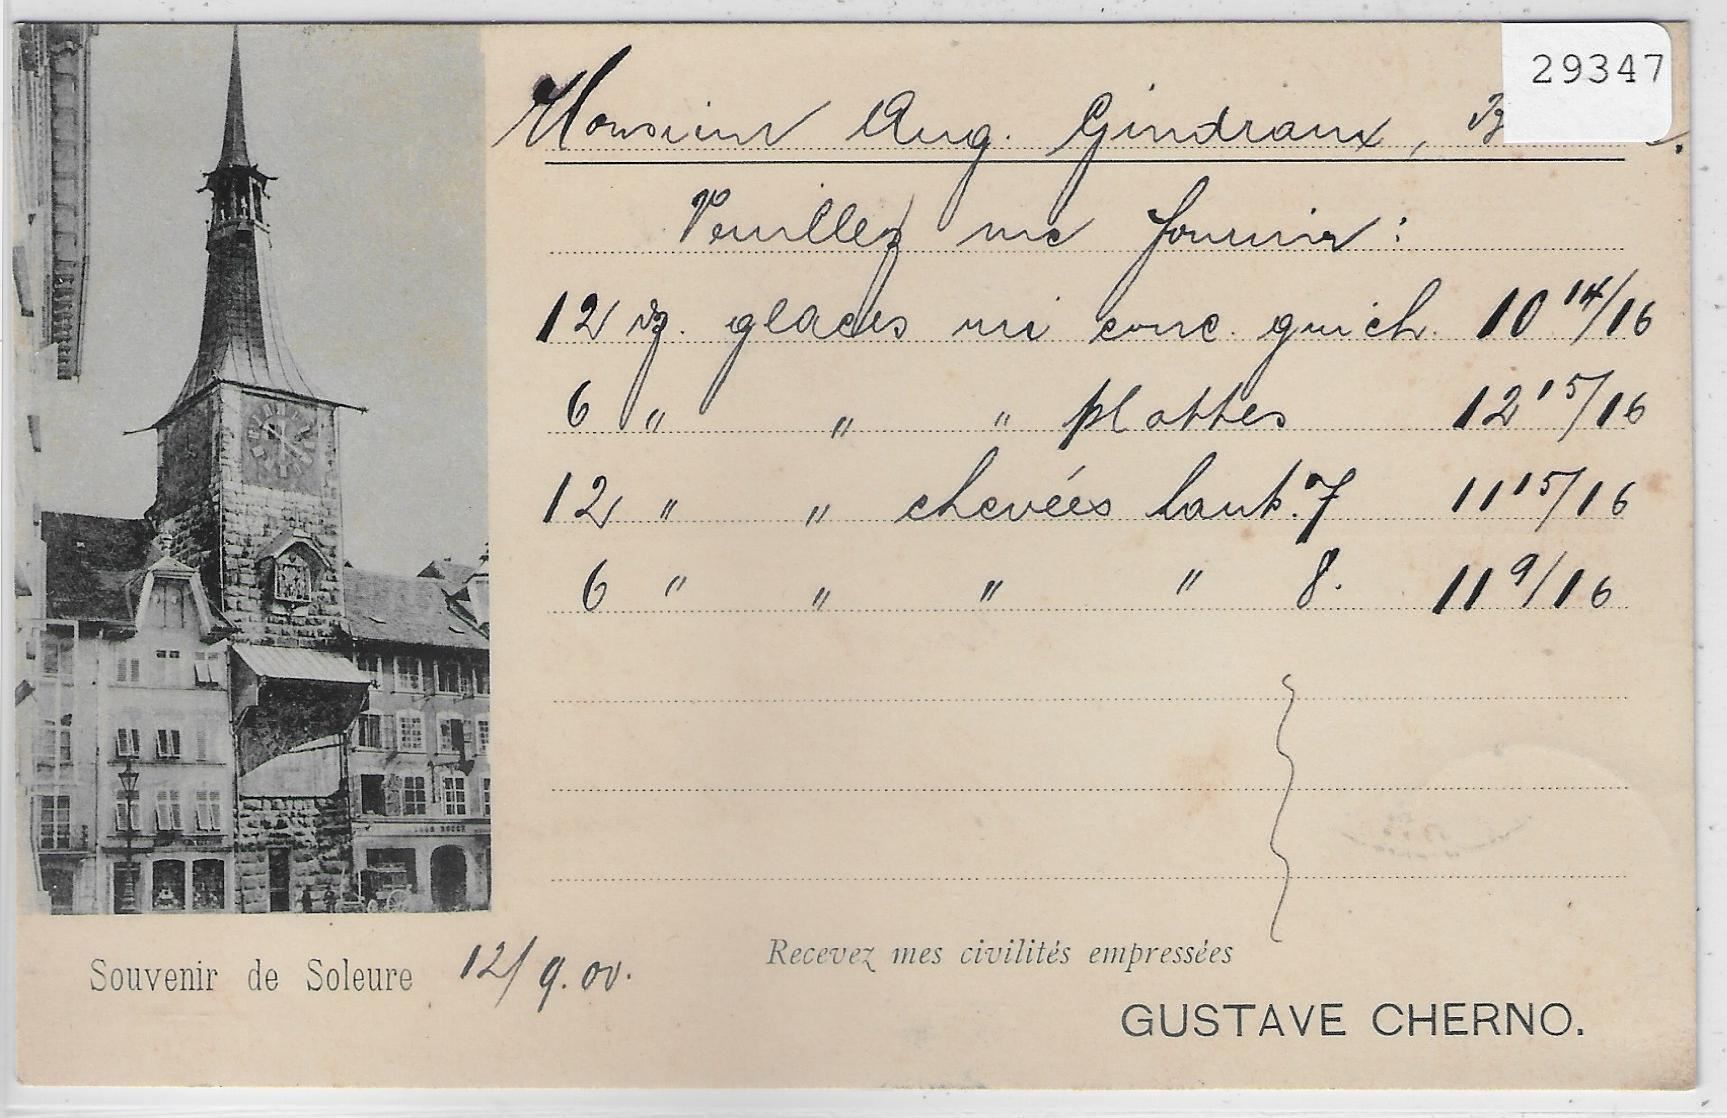 29347
Monsieur Aug. Gindraux, B
Veuillez me fournir :
12 dz. glaces mi conc. guich. 10 14/16
6 " " " plattes 12 15/16
12 " " chevées haut. 7 11 15/16
6 " " " " 8. 11 9/16
Recevez mes civilités empressées
Souvenir de Soleure 12/9.00.
GUSTAVE CHERNO.